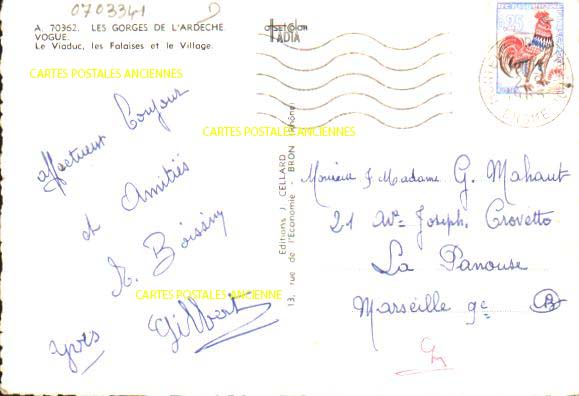 0703341
A. 70362. LES GORGES DE L'ARDECHE
VOGUE.
Le Viaduc, les Falaises et le Village.
offset color
IADIA
0,25
CARTES POSTALES ANCIENNES
CARTES POSTALES ANCIENNES
CARTES POSTALES ANCIENNE
affectueux Bonjour
et Amitiés
R. Boissiny
Yves Gilbert
Editions J. CELLARD
13, rue de l'Economie - BRON (Rhône)
Monsieur & Madame G. Mahaut
21 Ave Joseph Crovetto
La Panouse
Marseille 9e